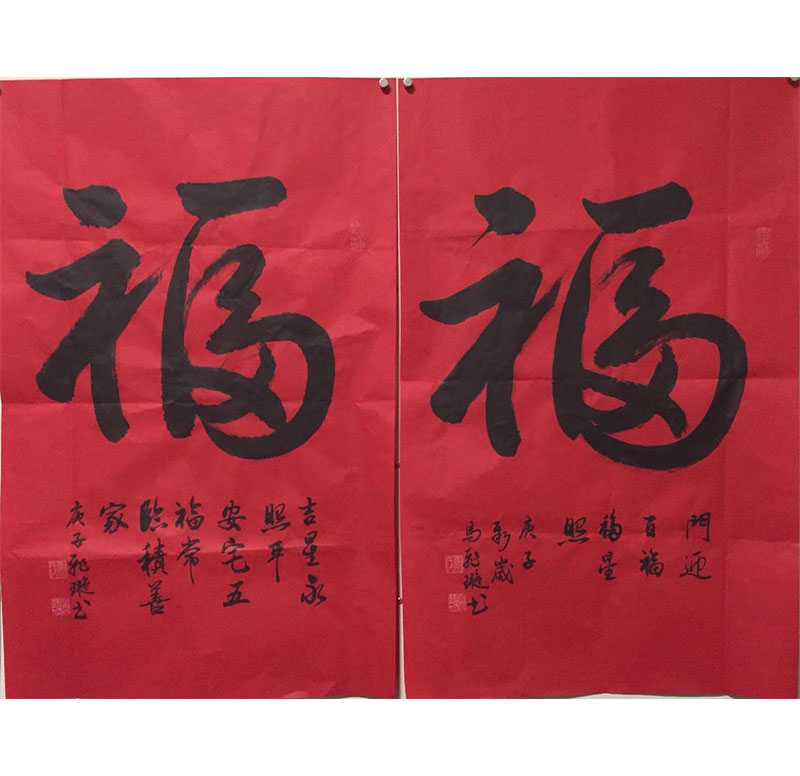 福
門迎
百福
福星
照
庚子
新歲
馬飛璇书
福
吉星永
照平
安宅五
福常
臨積善
家
庚子飛璇书